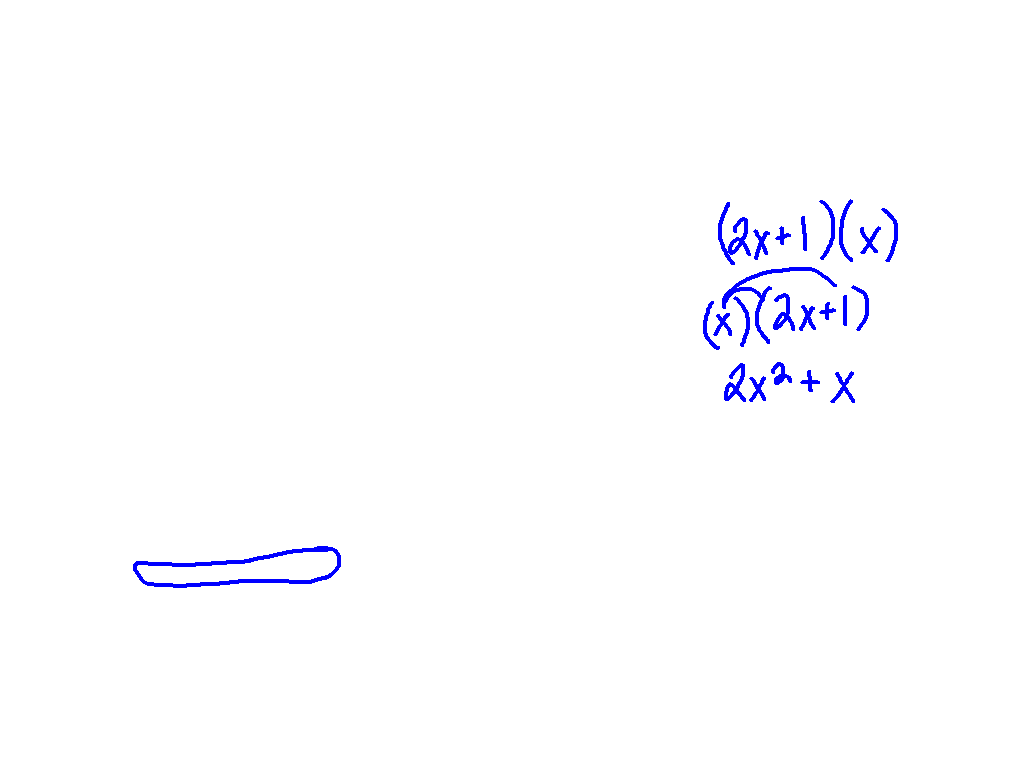 (2x+1)(x)
(x)(2x+1)
2x² + x